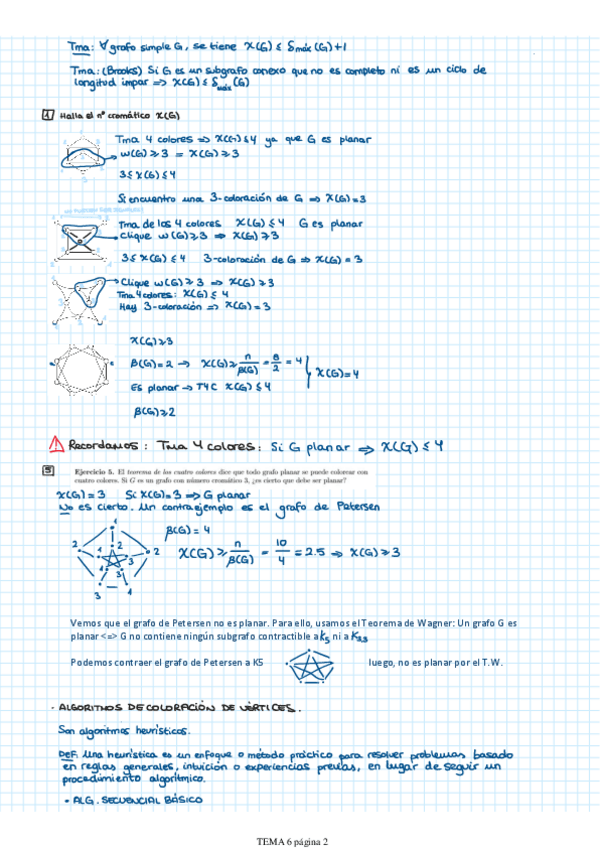 Tma: ∀ grafo simple G, se tiene χ(G) ≤ δmáx(G)+1
Tma: (Brooks) Si G es un subgrafo conexo que no es completo ni es un ciclo de
longitud impar => χ(G) ≤ δmáx(G)
1 Halla el nº cromático χ(G)
Tma 4 colores => χ(G) ≤ 4 ya que G es planar
ω(G) ≥ 3 = χ(G) ≥ 3
3 ≤ χ(G) ≤ 4
Si encuentro una 3-coloración de G => χ(G)=3
Tma de los 4 colores χ(G) ≤ 4 G es planar
Clique ω(G) ≥ 3 => χ(G) ≥ 3
3 ≤ χ(G) ≤ 4 3-coloración de G => χ(G) = 3
Clique ω(G) ≥ 3 => χ(G) ≥ 3
Tma 4 colores: χ(G) ≤ 4
Hay 3-coloración => χ(G) = 3
χ(G) ≥ 3
β(G) = 2 → χ(G) ≥ n/β(G) = 8/2 = 4
χ(G) = 4
Es planar → T4C χ(G) ≤ 4
β(G) ≥ 2
Recordamos: Tma 4 colores: Si G planar => χ(G) ≤ 4
5 Ejercicio 5. El teorema de los cuatro colores dice que todo grafo planar se puede colorear con
cuatro colores. Si G es un grafo con número cromático 3, ¿es cierto que debe ser planar?
χ(G) = 3 Si χ(G) = 3 => G planar
No es cierto. Un contraejemplo es el grafo de Petersen
β(G) = 4
χ(G) ≥ n/β(G) = 10/4 = 2.5 => χ(G) ≥ 3
1
2 1 2 2
3 3
3 1
Vemos que el grafo de Petersen no es planar. Para ello, usamos el Teorema de Wagner: Un grafo G es
planar <=> G no contiene ningún subgrafo contractible a k5 ni a K3,3
Podemos contraer el grafo de Petersen a K5 luego, no es planar por el T.W.
· ALGORITMOS DE COLORACIÓN DE VÉRTICES.
Son algoritmos heurísticos.
DEF: Una heurística es un enfoque o método práctico para resolver problemas basado
en reglas generales, intuición o experiencias previas, en lugar de seguir un
procedimiento algorítmico.
• ALG. SECUENCIAL BÁSICO
TEMA 6 página 2